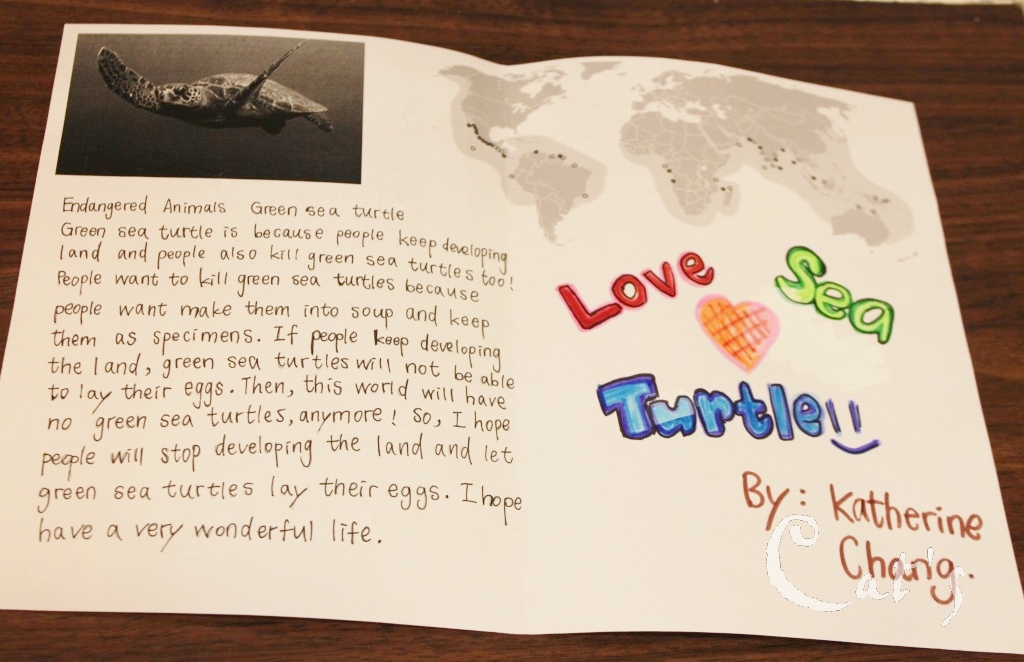 Endangered Animals Green sea turtle
Green sea turtle is because people keep developing
land and people also kill green sea turtles too!
People want to kill green sea turtles because
people want make them into soup and keep
them as specimens. If people keep developing
the land, green sea turtles will not be able
to lay their eggs. Then, this world will have
no green sea turtles, anymore! So, I hope
people will stop developing the land and let
green sea turtles lay their eggs. I hope
have a very wonderful life.
Love Sea
Turtle
By: Katherine
Chang.
Cat's